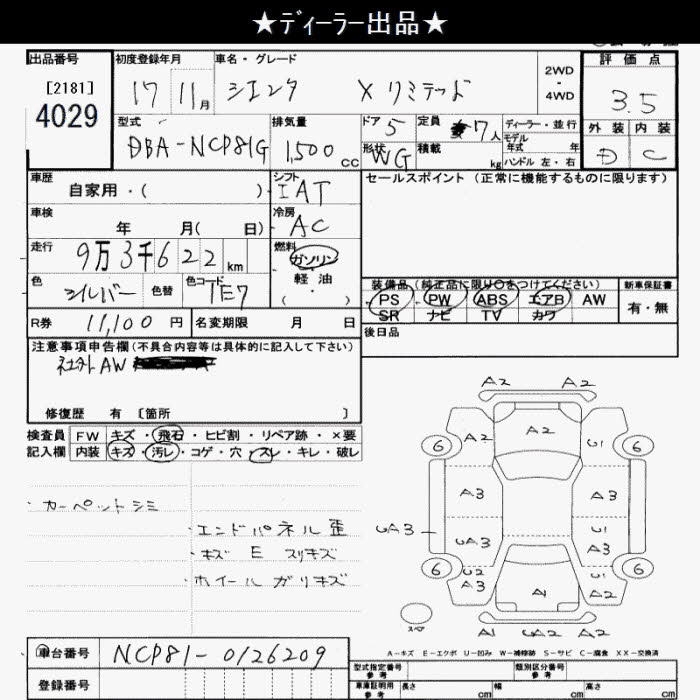 ★ディーラー出品★
出品番号 初度登録年月 車名・グレード 評価点
[2181] 2WD
4029 17 11月 シエンタ Xリミテッド - 4WD 3.5
型式 排気量 ドア 5 定員 7人 ディーラー・並行 外装 内装
DBA-NCP81G 1,500cc 形状 WG 積載 kg モデル年式 年 D C
ハンドル 左・右
車歴 シフト セールスポイント (正常に機能するものに限ります)
自家用・( ) IAT
車検 冷房
年 月( 日) AC
走行 燃料
9万3千622km ガソリン
色 色替 色コード 軽・油 装備品(純正品に限り○をつけてください) 新車保証書
シルバー 1E7 (・) PS PW ABS エアB AW 有・無
R券 11,100円 名変期限 月 日 SR ナビ TV カワ
後日品
注意事項申告欄(不具合内容等は具体的に記入して下さい)
社外AW
修復歴 有 [箇所 ]
検査員 FW キズ・飛石・ヒビ割・リペア跡・×要
記入欄 内装 キズ・汚レ・コゲ・穴・スレ・キレ・破レ
・カーペットシミ
・エンドパネル歪
・キズ E スリキズ
・ホイールガリキズ
A2 A2
A2
6 A2 U1 6
A3 A3
UA3 UA3 U1 A3
6 U2 A3 U1 A2 6
A1
スペア A1 UA2 A2
A-キズ E-エクボ U-凹み W-補修跡 S-サビ C-腐食 XX-交換済
車台番号 NCP81-0126209
型式指定番号 参考 類別区分番号 参考
登録番号 車庫証明用 参考 長さ cm 幅 cm 高さ cm